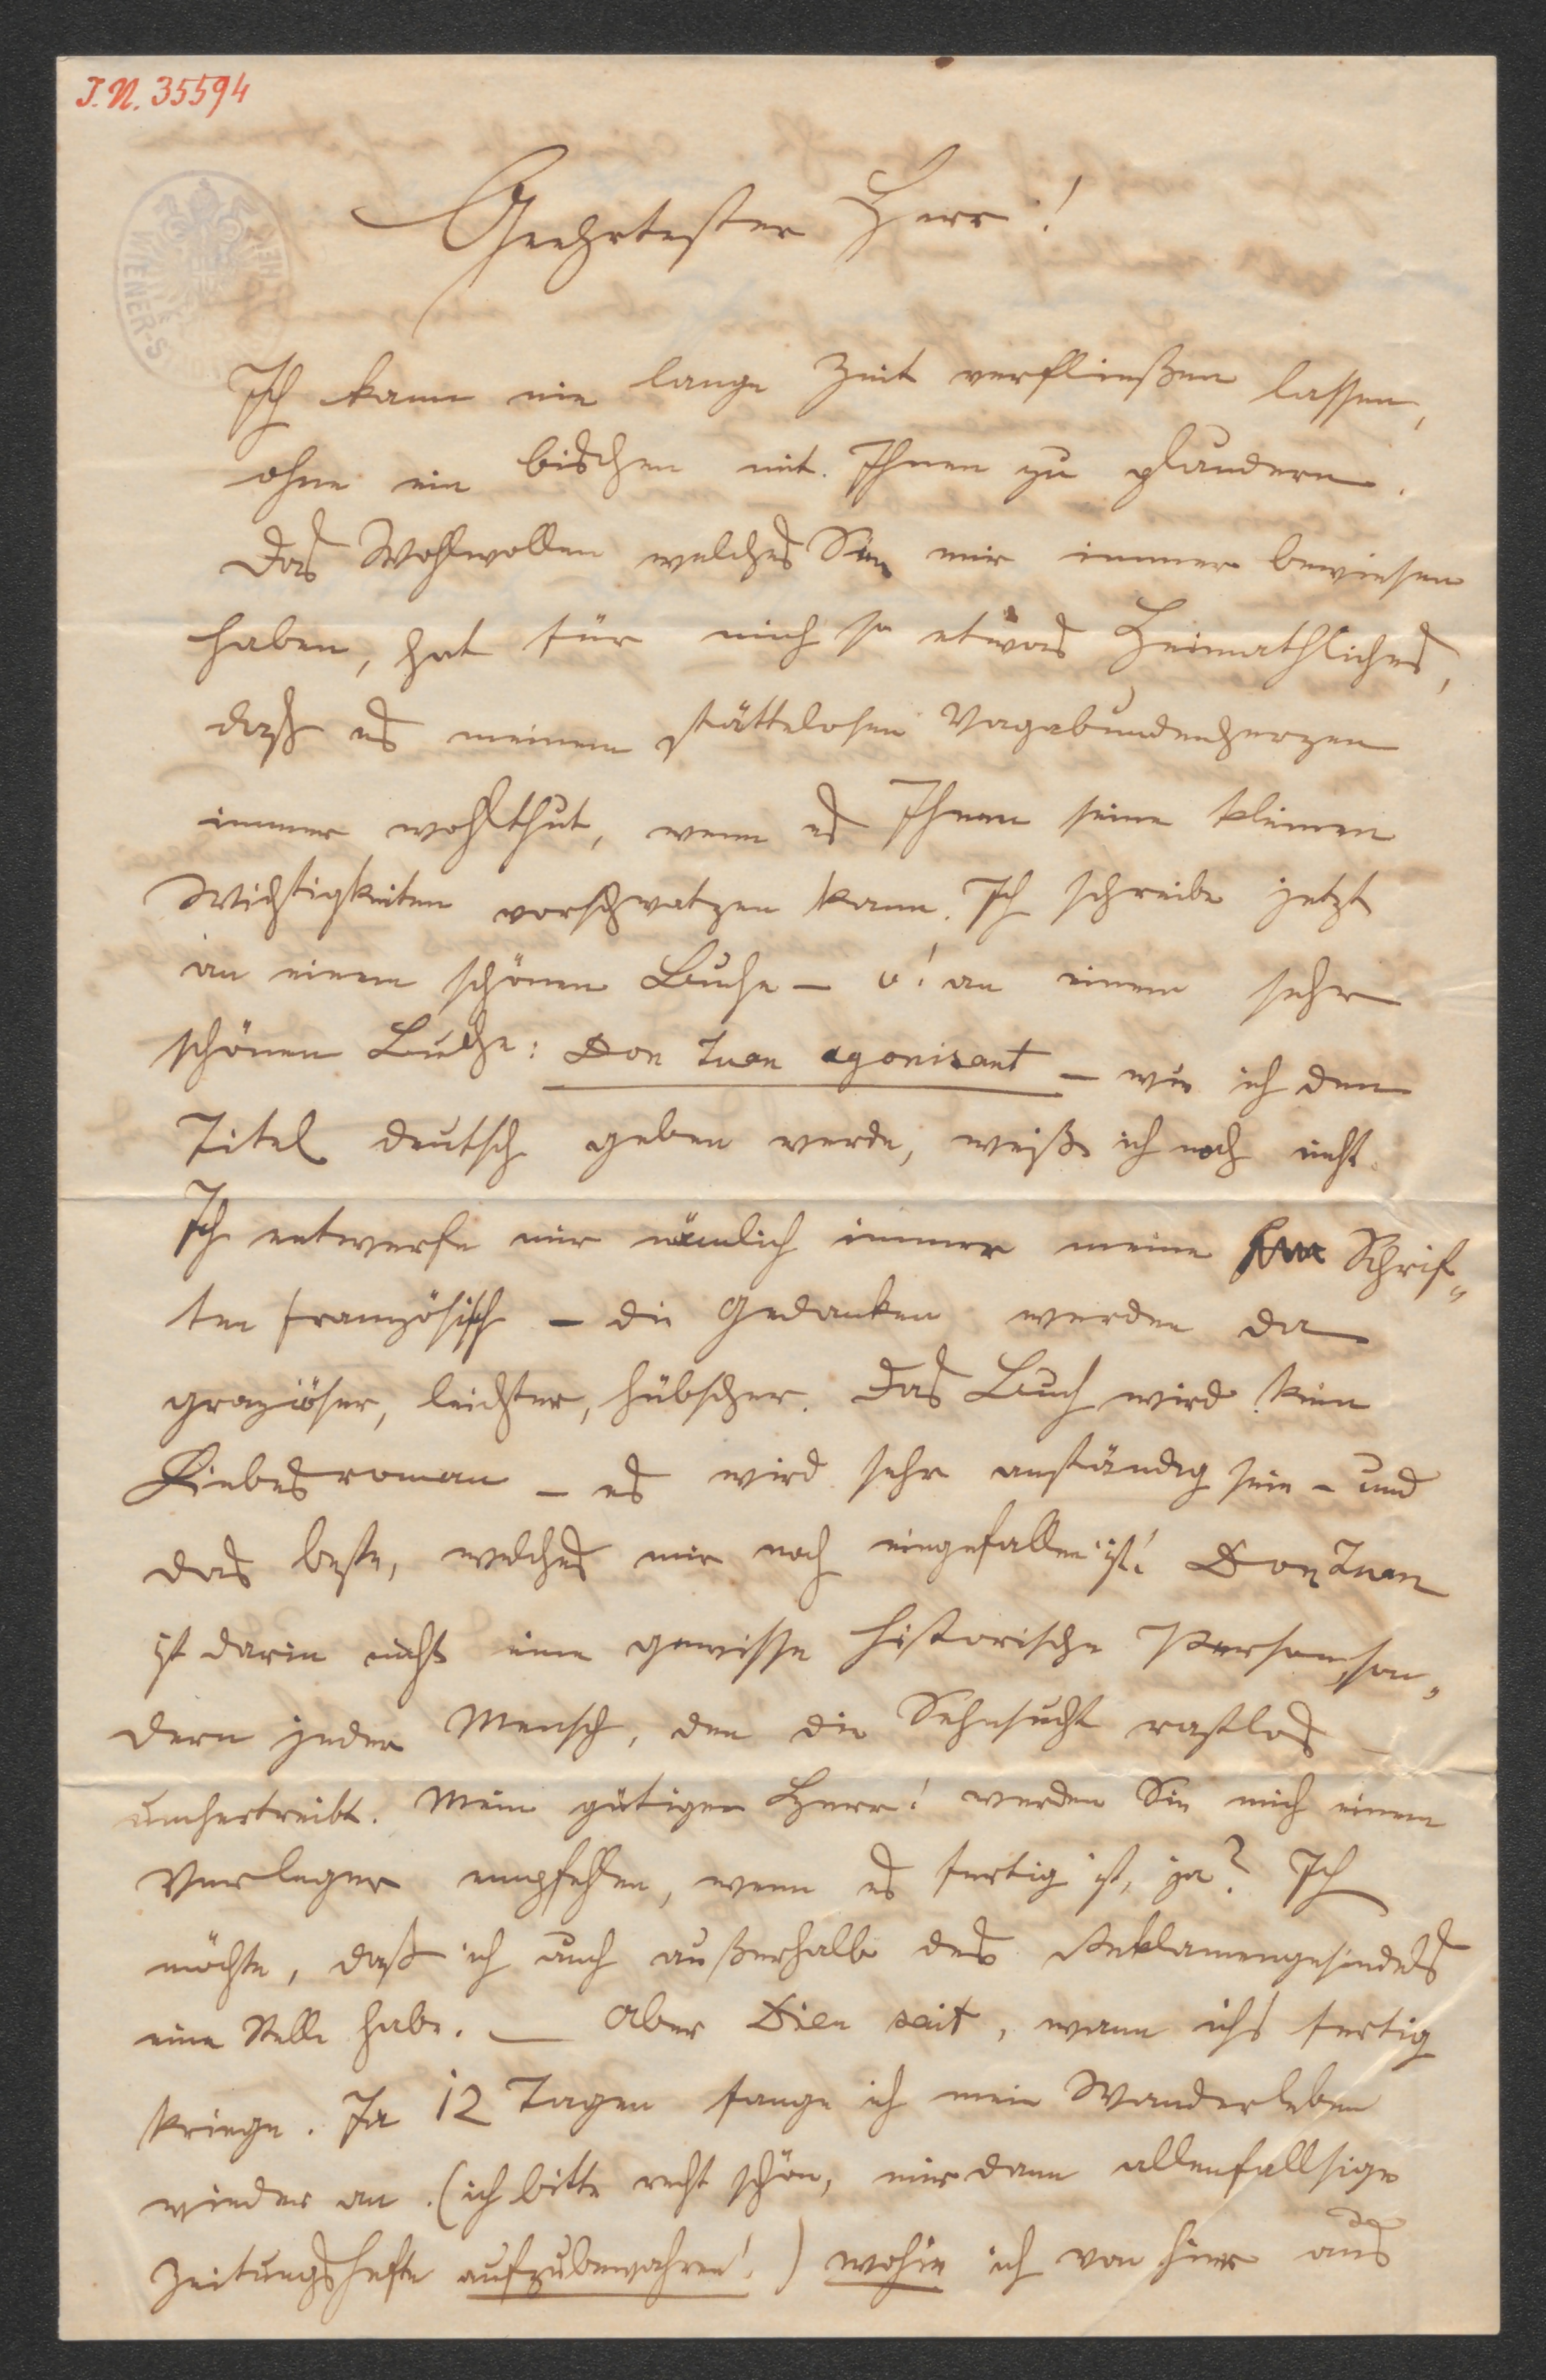 J. N. 35594
Geehrtester Herr!
Ich kann nie lange Zeit verfließen lassen,
ohne ein bischen mit Ihnen zu plaudern.
Das Wohlwollen welches Sie mir immer bewiesen
haben, hat für mich so etwas Heimathliches,
daß es meinem stättelosen Vagabundenherzen
immer wohlthut, wenn es Ihnen seine kleinen
Wichtigkeiten vorschwatzen kann. Ich schreibe jetzt
an einem schönen Buche – o! an einem sehr
schönen Buche: Don Juan agonisant – wie ich den
Titel deutsch geben werde, weiß ich noch nicht.
Ich entwerfe mir nämlich immer meine Schrif„
ten französisch – die Gedanken werden da
graziöser, leichter, hübscher. Das Buch wird kein
Liebesroman – es wird sehr anständig sein – und
das beste, welches mir noch eingefallen ist! Don Juan
ist darin nicht eine gewisse historische Person, son„
dern jeder Mensch, den die Sehnsucht rastlos
umhertreibt. Mein gütiger Herr! werden Sie mich einem
Verleger empfehlen, wenn es fertig ist, ja? Ich
möchte, daß ich auch außerhalb des Reklamengesindels
eine Stelle habe. — Aber Dieu sait, wann ichs fertig
kriege. In 12 Tagen fange ich mein Wanderleben
wieder an. (ich bitte recht schön, mir dann allenfallsige
Zeitungshefte aufzubewahren!) wohin ich von hier aus
WIENER-S